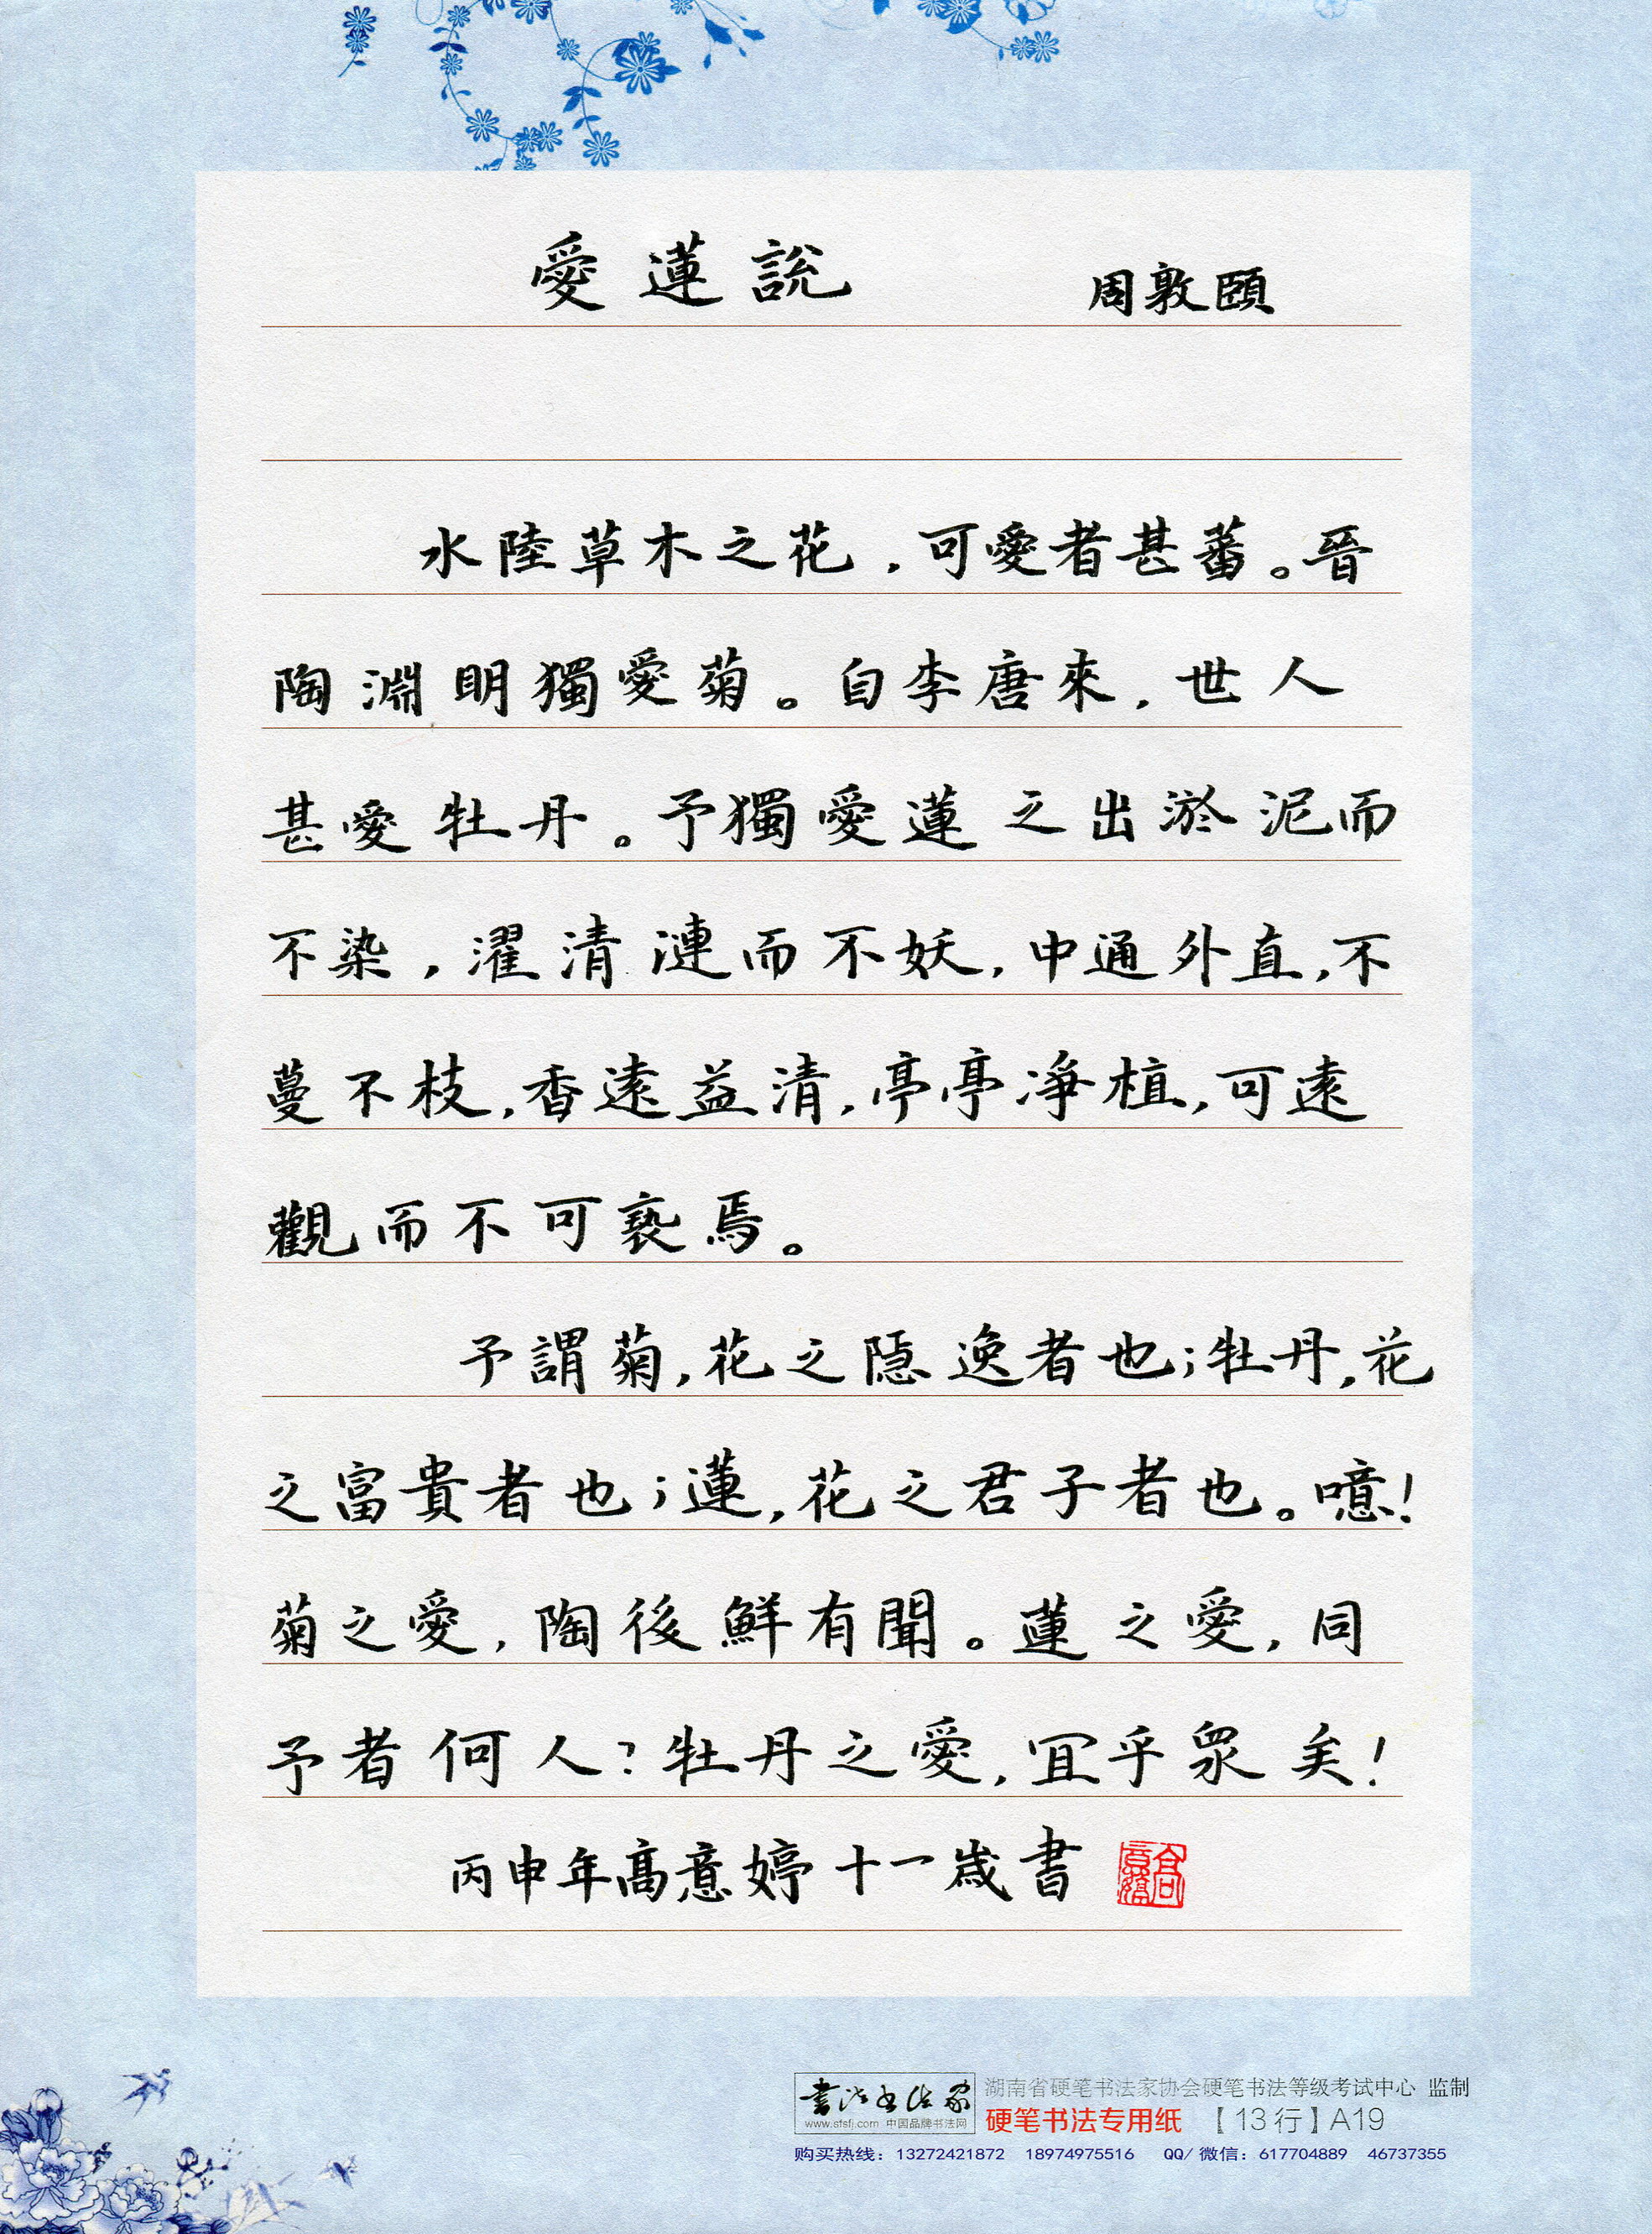 愛蓮說 周敦頤
水陸草木之花，可愛者甚蕃。晉
陶淵明獨愛菊。自李唐來，世人
甚愛牡丹。予獨愛蓮之出淤泥而
不染，濯清漣而不妖，中通外直，不
蔓不枝，香遠益清，亭亭淨植，可遠
觀而不可褻焉。
予謂菊，花之隱逸者也；牡丹，花
之富貴者也；蓮，花之君子者也。噫！
菊之愛，陶後鮮有聞。蓮之愛，同
予者何人？牡丹之愛，宜乎眾矣！
丙申年高意婷十一歲書
湖南省硬笔书法家协会硬笔书法等级考试中心 监制
www.sfsfj.com 中国品牌书法网
硬笔书法专用纸 【13行】A19
购买热线：13272421872 18974975516 QQ/微信：617704889 46737355